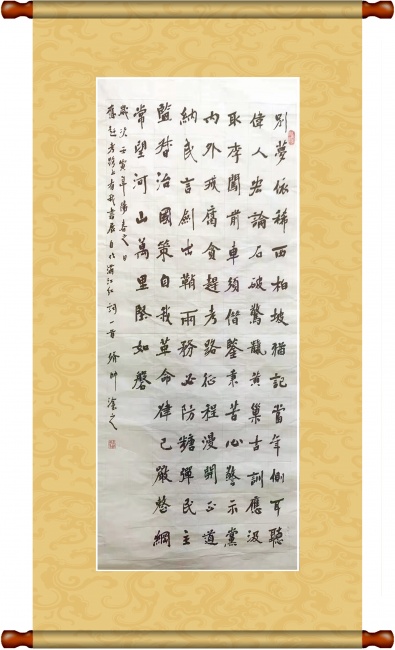 別夢依稀西柏坡猶記當年側耳聽
偉人宏論石破驚龍黃巢古訓應汲
取李闖前車須借鑒秉苦心警示黨
內外戒腐貪趕考路征程漫開正道
納民言劍出鞘兩務必防糖彈民主
監督治國策自我革命律己嚴整綱
常望河山萬里堅如磐
歲次壬寅年陽春之日
趕考路上有我書展自作滿江紅詞一首